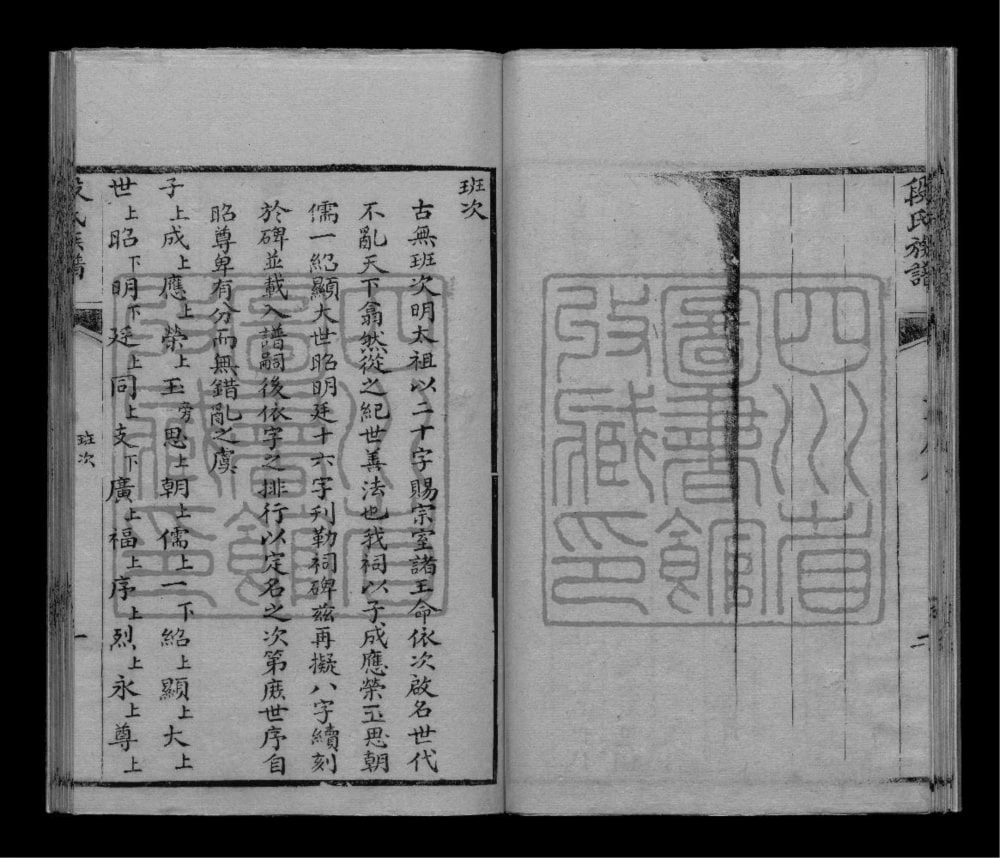 段氏族譜
二
班次
古無班次明太祖以二十字賜宗室諸王命依次啟名世代
不亂天下翕然從之紀世善法也我祠以子成應榮玉思朝
儒一紹顯大世昭明廷十六字刋勒祠碑兹再擬八字續刻
於碑並載入譜嗣後依字之排行以定名之次第庶世序自
昭尊卑有分而無錯亂之虞
子上成上應上榮上玉旁思上朝上儒上一下紹上顯上大上
世上昭下明下廷上同上支下廣上福上序上烈上永上尊上
段氏族譜
班次
一
四川省
圖書館
攷藏印
四川省
圖書館
攷藏印